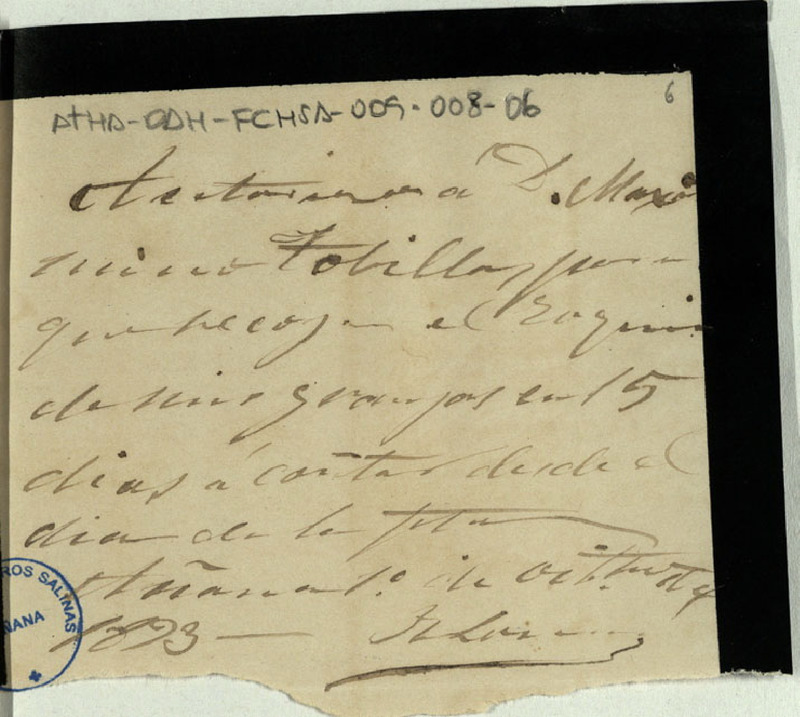 AtHA-DAH-FCHSA-009-008-06
6
Autorizo a D. Maxi
mino Tobillas para
que recoja el
de mis granjas en 15
dias á contar desde el
dia de la fha
Añana 1º. de Octbre. de
1893
ROS SALINAS
ÑANA